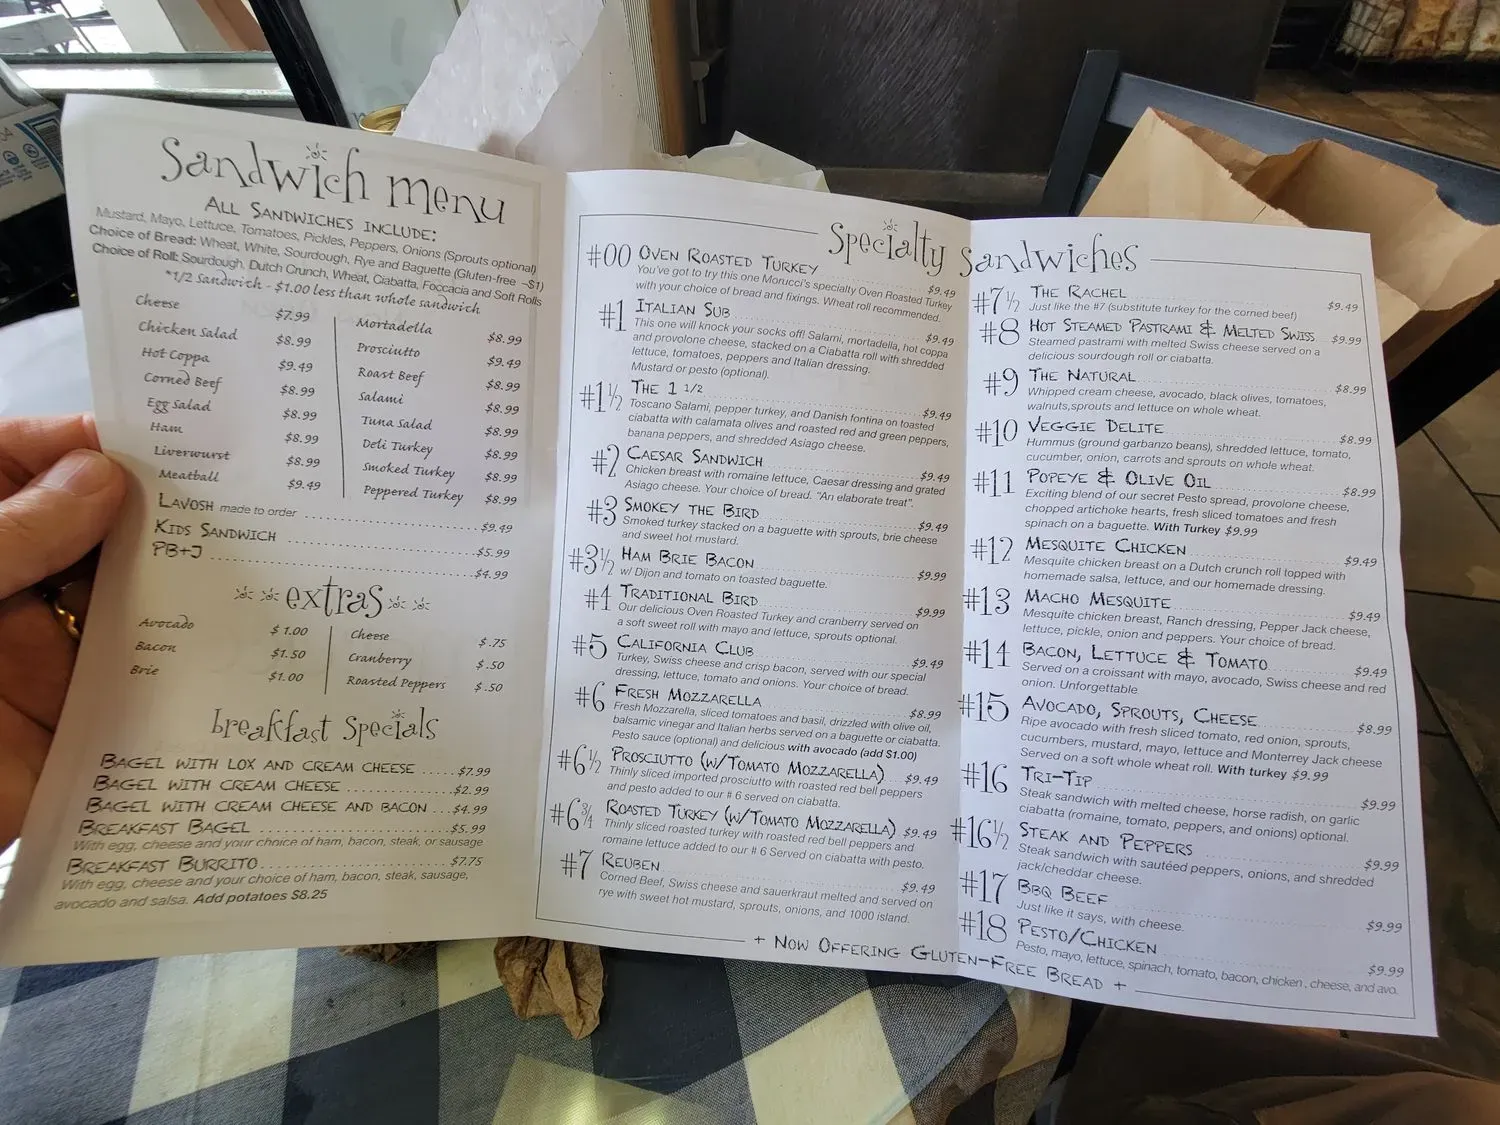 Sandwich menu
All Sandwiches Include:
Mustard, Mayo, Lettuce, Tomatoes, Pickles, Peppers, Onions (Sprouts optional)
Choice of Bread: Wheat, White, Sourdough, Rye and Baguette (Gluten-free ~$1)
Choice of Roll: Sourdough, Dutch Crunch, Wheat, Ciabatta, Foccacia and Soft Rolls
*1/2 Sandwich - $1.00 less than whole sandwich
Cheese $7.99
Chicken Salad $8.99
Hot Coppa $9.49
Corned Beef $8.99
Egg Salad $8.99
Ham $8.99
Liverwurst $8.99
Meatball $9.49
Mortadella $8.99
Prosciutto $9.49
Roast Beef $8.99
Salami $8.99
Tuna Salad $8.99
Deli Turkey $8.99
Smoked Turkey $8.99
Peppered Turkey $8.99
Lavosh made to order $9.49
Kids Sandwich $5.99
PB+J $4.99
extras
Avocado $1.00
Bacon $1.50
Brie $1.00
Cheese $.75
Cranberry $.50
Roasted Peppers $.50
breakfast Specials
Bagel with lox and cream cheese ..... $7.99
Bagel with cream cheese ..... $2.99
Bagel with cream cheese and bacon ... $4.99
Breakfast Bagel ..... $5.99
With egg, cheese and your choice of ham, bacon, steak, or sausage
Breakfast Burrito ..... $7.75
With egg, cheese and your choice of ham, bacon, steak, sausage,
avocado and salsa. Add potatoes $8.25
Specialty Sandwiches
#00 Oven Roasted Turkey $9.49
You've got to try this one Morucci's specialty Oven Roasted Turkey
with your choice of bread and fixings. Wheat roll recommended.
#1 Italian Sub $9.49
This one will knock your socks off! Salami, mortadella, hot coppa
and provolone cheese, stacked on a Ciabatta roll with shredded
lettuce, tomatoes, peppers and Italian dressing.
Mustard or pesto (optional).
#1½ The 1 1/2 $9.49
Toscano Salami, pepper turkey, and Danish fontina on toasted
ciabatta with calamata olives and roasted red and green peppers,
banana peppers, and shredded Asiago cheese.
#2 Caesar Sandwich $9.49
Chicken breast with romaine lettuce, Caesar dressing and grated
Asiago cheese. Your choice of bread. "An elaborate treat".
#3 Smokey the Bird $9.49
Smoked turkey stacked on a baguette with sprouts, brie cheese
and sweet hot mustard.
#3½ Ham Brie Bacon $9.99
w/ Dijon and tomato on toasted baguette.
#4 Traditional Bird $9.99
Our delicious Oven Roasted Turkey and cranberry served on
a soft sweet roll with mayo and lettuce, sprouts optional.
#5 California Club $9.49
Turkey, Swiss cheese and crisp bacon, served with our special
dressing, lettuce, tomato and onions. Your choice of bread.
#6 Fresh Mozzarella $8.99
Fresh Mozzarella, sliced tomatoes and basil, drizzled with olive oil,
balsamic vinegar and Italian herbs served on a baguette or ciabatta.
Pesto sauce (optional) and delicious with avocado (add $1.00)
#6½ Prosciutto (w/Tomato Mozzarella) $9.49
Thinly sliced imported prosciutto with roasted red bell peppers
and pesto added to our # 6 served on ciabatta.
#6¾ Roasted Turkey (w/Tomato Mozzarella) $9.49
Thinly sliced roasted turkey with roasted red bell peppers and
romaine lettuce added to our # 6 Served on ciabatta with pesto.
#7 Reuben $9.49
Corned Beef, Swiss cheese and sauerkraut melted and served on
rye with sweet hot mustard, sprouts, onions, and 1000 island.
#7½ The Rachel $9.49
Just like the #7 (substitute turkey for the corned beef)
#8 Hot Steamed Pastrami & Melted Swiss $9.99
Steamed pastrami with melted Swiss cheese served on a
delicious sourdough roll or ciabatta.
#9 The Natural $8.99
Whipped cream cheese, avocado, black olives, tomatoes,
walnuts,sprouts and lettuce on whole wheat.
#10 Veggie Delite $8.99
Hummus (ground garbanzo beans), shredded lettuce, tomato,
cucumber, onion, carrots and sprouts on whole wheat.
#11 Popeye & Olive Oil $8.99
Exciting blend of our secret Pesto spread, provolone cheese,
chopped artichoke hearts, fresh sliced tomatoes and fresh
spinach on a baguette. With Turkey $9.99
#12 Mesquite Chicken $9.49
Mesquite chicken breast on a Dutch crunch roll topped with
homemade salsa, lettuce, and our homemade dressing.
#13 Macho Mesquite $9.49
Mesquite chicken breast, Ranch dressing, Pepper Jack cheese,
lettuce, pickle, onion and peppers. Your choice of bread.
#14 Bacon, Lettuce & Tomato $9.49
Served on a croissant with mayo, avocado, Swiss cheese and red
onion. Unforgettable
#15 Avocado, Sprouts, Cheese $8.99
Ripe avocado with fresh sliced tomato, red onion, sprouts,
cucumbers, mustard, mayo, lettuce and Monterrey Jack cheese
Served on a soft whole wheat roll. With turkey $9.99
#16 Tri-Tip $9.99
Steak sandwich with melted cheese, horse radish, on garlic
ciabatta (romaine, tomato, peppers, and onions) optional.
#16½ Steak and Peppers $9.99
Steak sandwich with sautéed peppers, onions, and shredded
jack/cheddar cheese.
#17 BBQ Beef $9.99
Just like it says, with cheese.
#18 Pesto/Chicken $9.99
Pesto, mayo, lettuce, spinach, tomato, bacon, chicken, cheese, and avo.
+ Now Offering Gluten-Free Bread +